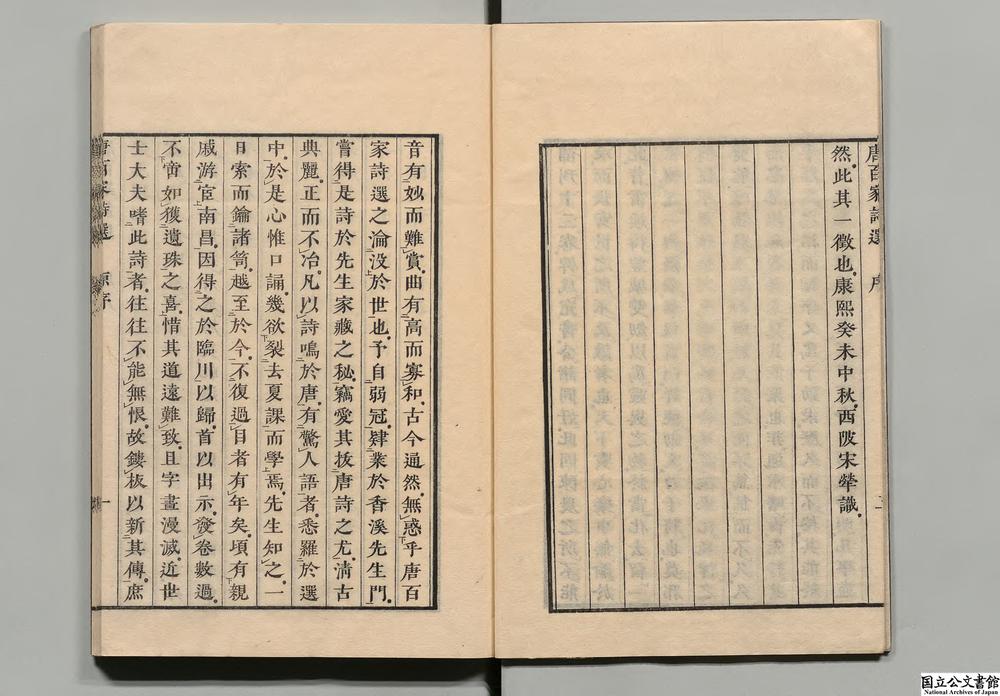 唐百家詩選 序
然此其一徵也康熙癸未中秋西陂宋犖識
音有妙而難賞曲有高而寡和古今通然無惑乎唐百
家詩選之淪没於世也予自弱冠肄業於香溪先生門
嘗得是詩於先生家藏之秘竊愛其拔唐詩之尤清古
典麗正而不冶凡以詩鳴於唐有驚人語者悉羅於選
中於是心惟口誦幾欲裂去夏課而學焉先生知之一
日索而鑰諸笥越至於今不復過目者有年矣頃有親
戚游宦南昌因得之於臨川以歸首以出示發卷數過
不啻如獲遺珠之喜惜其道遠難致且字畫漫滅近世
士大夫嗜此詩者往往不能無恨故鏤板以新其傳庶
唐百家詩選 原序 一
国立公文書館
National Archives of Japan